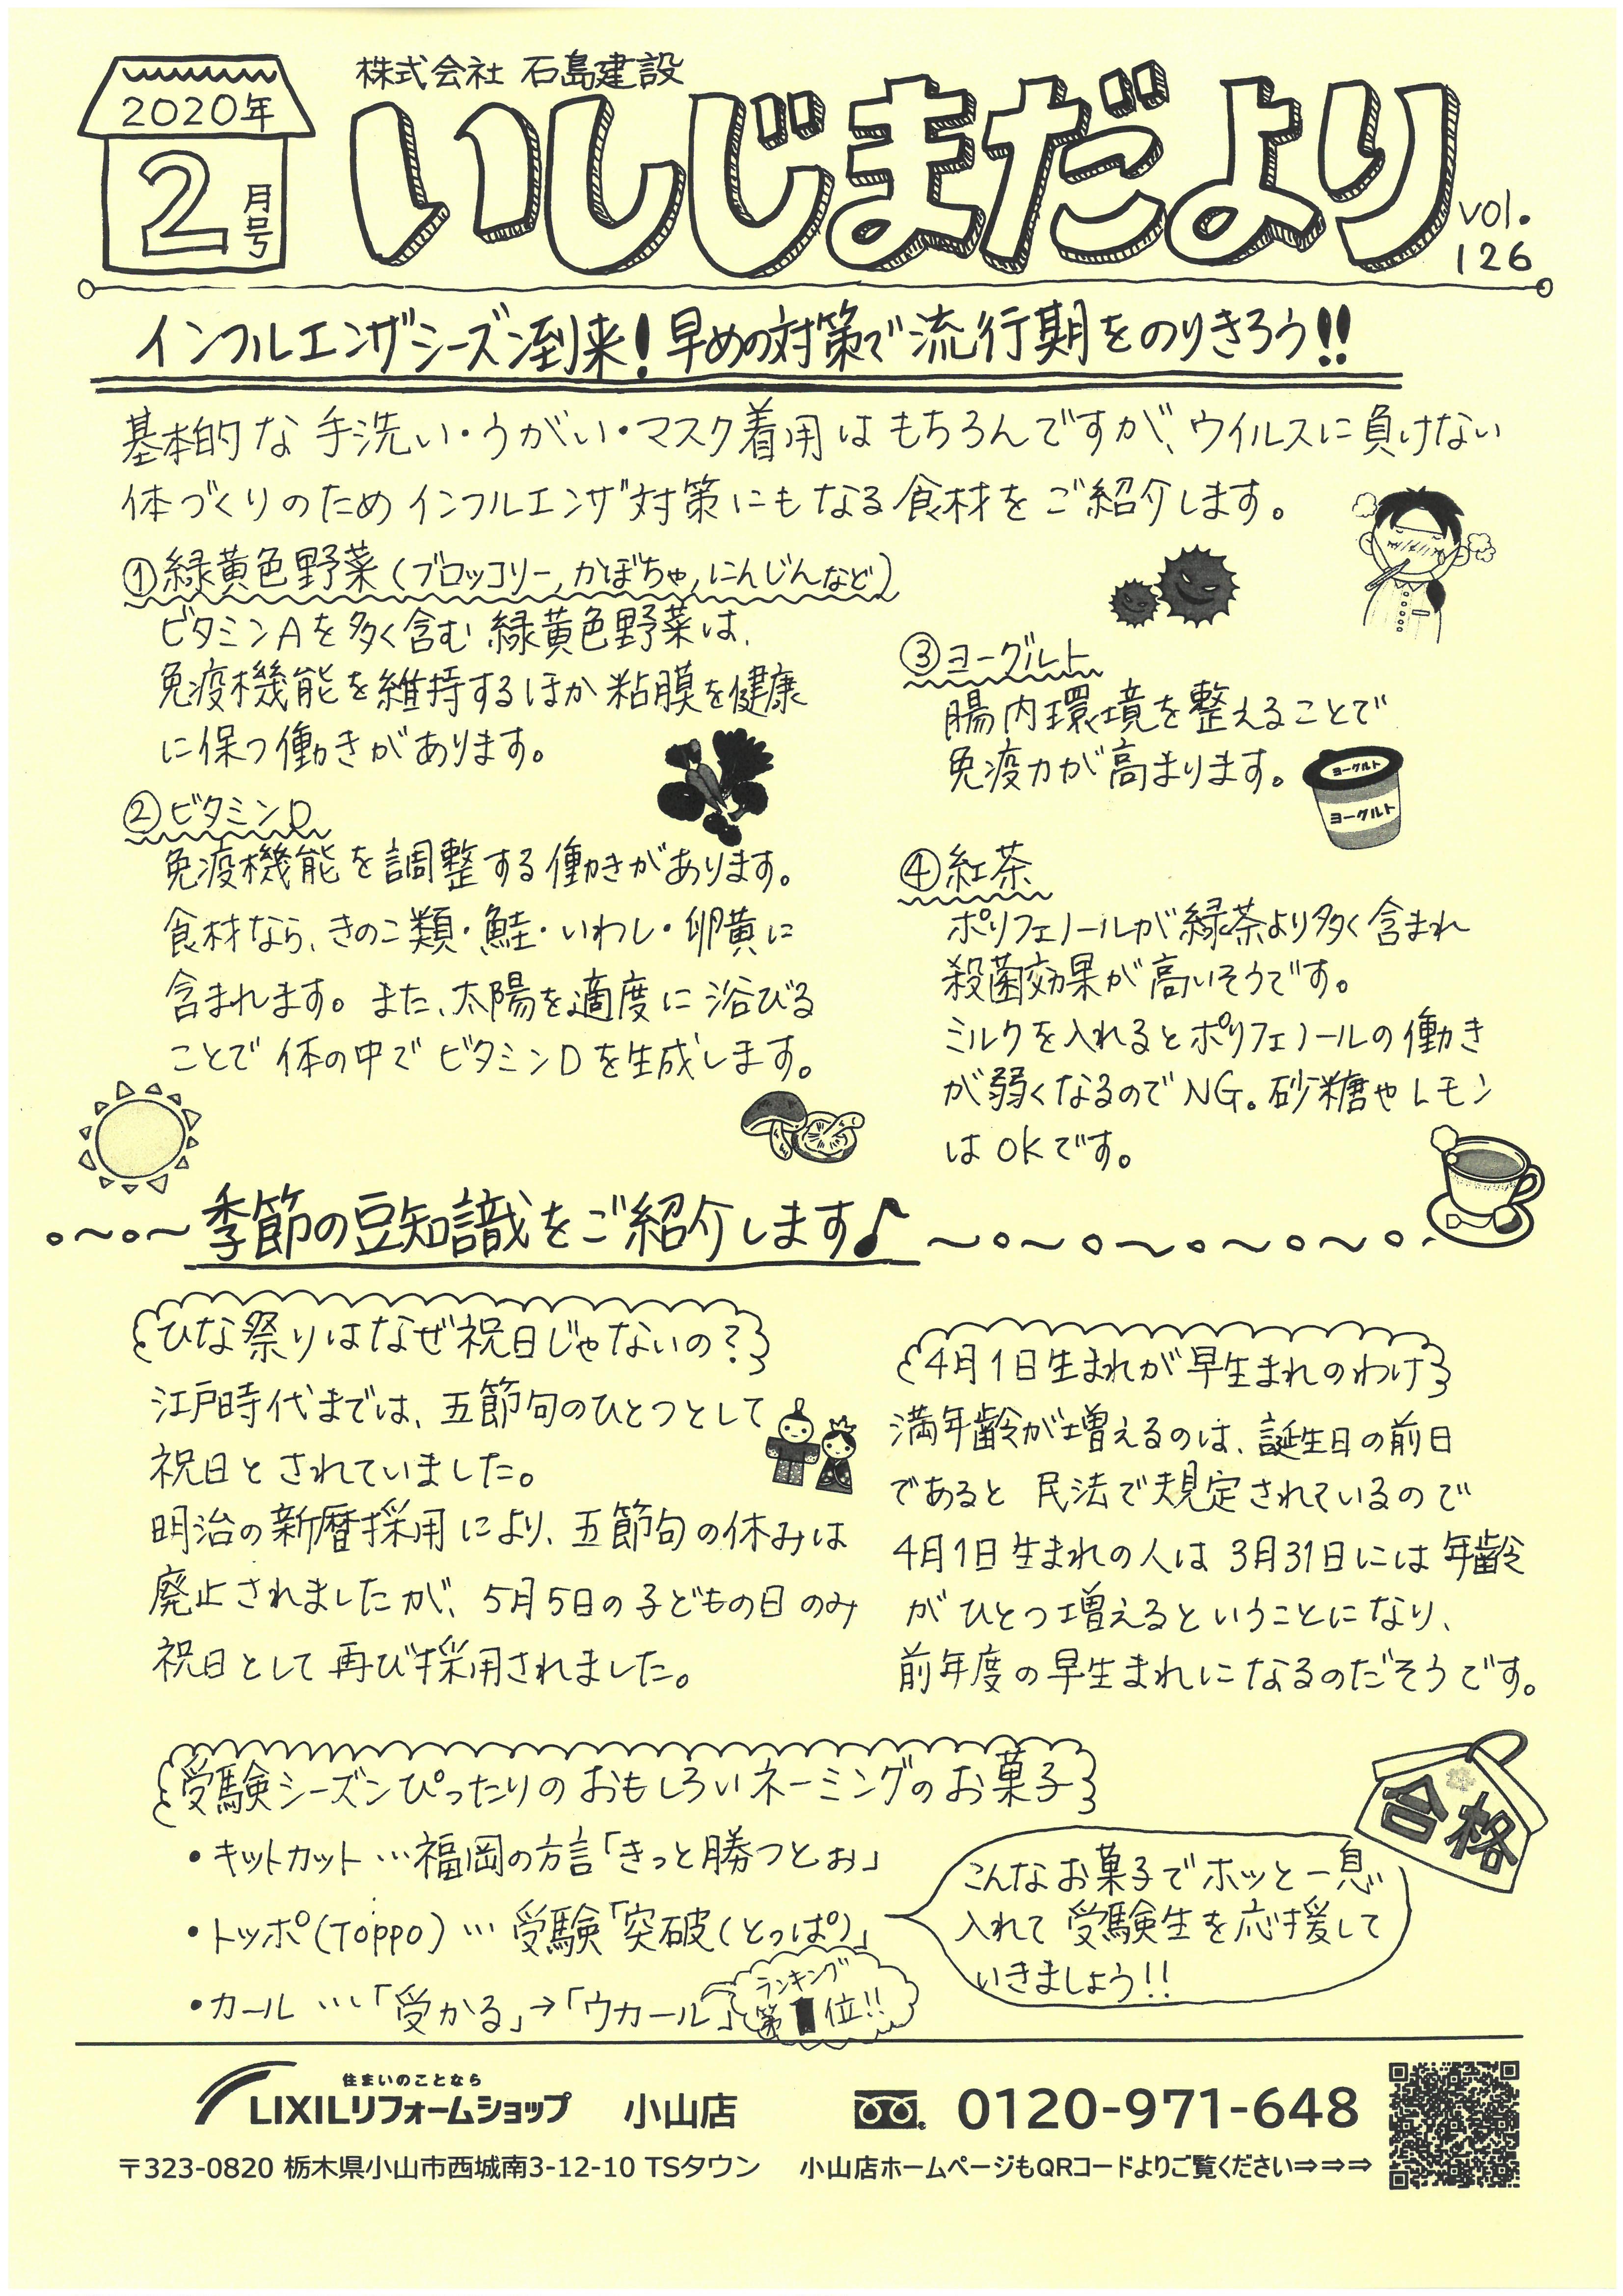 2020年
2月号
株式会社 石島建設
いしじまだより
vol.
126
インフルエンザシーズン到来!早めの対策で流行期をのりきろう!!
基本的な手洗い・うがい・マスク着用はもちろんですが、ウイルスに負けない
体づくりのためインフルエンザ対策にもなる食材をご紹介します。
①緑黄色野菜(ブロッコリー,かぼちゃ,にんじんなど)
ビタミンAを多く含む緑黄色野菜は、
免疫機能を維持するほか粘膜を健康
に保つ働きがあります。
②ビタミンD
免疫機能を調整する働きがあります。
食材なら、きのこ類・鮭・いわし・卵黄に
含まれます。また、太陽を適度に浴びる
ことで体の中でビタミンDを生成します。
③ヨーグルト
腸内環境を整えることで
免疫力が高まります。
ヨーグルト
ヨーグルト
④紅茶
ポリフェノールが緑茶より多く含まれ
殺菌効果が高いそうです。
ミルクを入れるとポリフェノールの働き
が弱くなるのでNG。砂糖やレモン
はOKです。
季節の豆知識をご紹介します♪
ひな祭りはなぜ祝日じゃないの?
江戸時代までは、五節句のひとつとして
祝日とされていました。
明治の新暦採用により、五節句の休みは
廃止されましたが、5月5日の子どもの日のみ
祝日として再び採用されました。
4月1日生まれが早生まれのわけ
満年齢が増えるのは、誕生日の前日
であると民法で規定されているので
4月1日生まれの人は3月31日には年齢
がひとつ増えるということになり、
前年度の早生まれになるのだそうです。
受験シーズンぴったりのおもしろいネーミングのお菓子
・キットカット…福岡の方言「きっと勝つとぉ」
・トッポ(Toppo)…受験「突破(とっぱ)」
・カール…「受かる」→「ウカール」
ランキング
第1位!!
こんなお菓子でホッと一息
入れて受験生を応援して
いきましょう!!
合格
住まいのことなら
LIXILリフォームショップ 小山店
0120-971-648
〒323-0820 栃木県小山市西城南3-12-10 TSタウン
小山店ホームページもQRコードよりご覧ください⇒⇒⇒